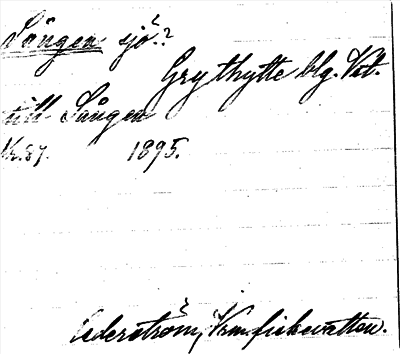 Sången sjö??
Grythytte blg. Vstm.
till Sången
1895.
Cederström, Vrm. fiskevatten.